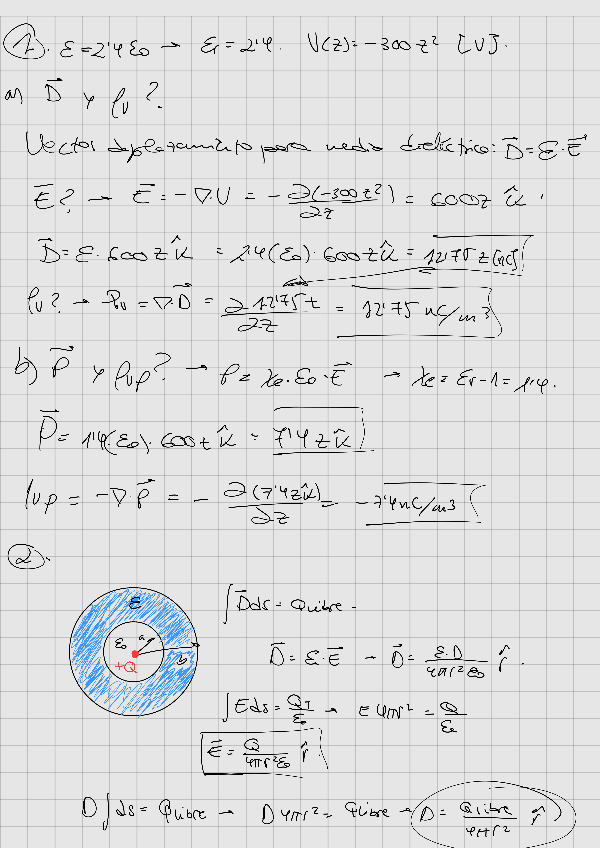 1). ε = 2'4 ε₀ → εr = 2'4. V(z) = -300 z² [V].
a) D⃗ y ρv?
Vector desplazamiento para medio dieléctrico: D⃗ = ε · E⃗
E⃗? → E⃗ = -∇·V = - ∂(-300z²)/∂z = 600z k̂
D⃗ = ε · 600 z k̂ = 2'4(ε₀) · 600 z k̂ = 12'75 z [nC]
ρv? → ρv = ∇·D⃗ = ∂ 12'75 z/∂z = 12'75 nC/m3
b) P⃗ y ρvp? → P = χe · ε₀ · E⃗ → χe = εr - 1 = 1'4.
P⃗ = 1'4(ε₀) · 600 z k̂ = 7'4 z k̂
ρvp = -∇·P⃗ = - ∂(7'4 z k̂)/∂z = -7'4 nC/m3
2).
ε
ε₀ a
+Q b
∫ D⃗ ds = Q libre -
D⃗ = ε · E⃗ → D⃗ = ε·D/4πr²ε₀ r̂.
∫ E ds = QT/ε₀ → E 4πr² = Q/ε₀
E⃗ = Q/4πr²ε₀ r̂
D ∫ ds = Q libre → D 4πr² = Q libre → D = Q libre/4πr² r̂